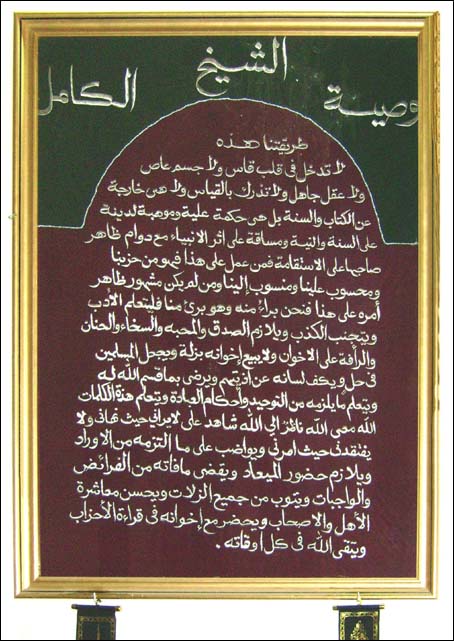 وصية الشيخ الكامل
طريقتنا هذه
لا تدخل في قلب قاس ولا جسم عاص
ولا عقل جاهل ولا تدرك بالقياس ولا هي خارجة
عن الكتاب والسنة بل هي حكمة علية وموهبة لدينة
على السنة والتية ومساقة على اثر الانبياء مع دوام ظاهر
صاحبها على الاستقامة فمن عمل على هذا فهو من حزبنا
ومحسوب علينا ومنسوب إلينا ومن لم يكن مشهور ظاهر
أمره على هذا فنحن براء منه وهو برئ منا فليتعلم الأدب
ويتجنب الكذب ويلازم الصدق والمحبه والسخاء والحنان
والرأفة على الاخوان ولا يبيع إخوانه بزلة ويجعل المسلمين
في حل ويكف لسانه عن أذيتهم ويرضى بما قسم الله له
ويتعلم ما يلزمه من التوحيد وأحكام العبادة ويتعلم هذة الكلمات
الله معى الله ناظر إلى الله شاهد على لا يراني حيث نهاني ولا
يفتقدني حيث امرني ويواضب على ما التزمه من الاوراد
ويلازم حضور الميعاد ويقضى مافاته من الفرائض
والواجبات ويتوب من جميع الزلات ويحسن معاشرة
الأهل والاصحاب ويحضر مع إخوانه في قراءة الأحزاب
ويتقى الله في كل اوقاته .